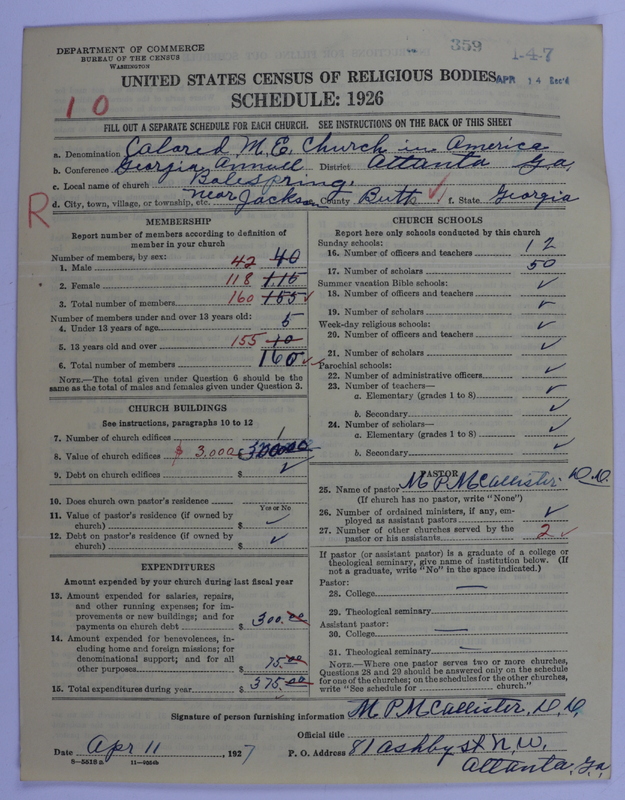 359
1-4-7
DEPARTMENT OF COMMERCE
BUREAU OF THE CENSUS
WASHINGTON
UNITED STATES CENSUS OF RELIGIOUS BODIES
APR 14 Rec'd
SCHEDULE: 1926
10
FILL OUT A SEPARATE SCHEDULE FOR EACH CHURCH. SEE INSTRUCTIONS ON THE BACK OF THIS SHEET
a. Denomination Colored M. E. Church in America
b. Conference Georgia Annuel District Atlanta Ga.
c. Local name of church
R
d. City, town, village, or township, etc. near Jackson County Butts f. State Georgia
MEMBERSHIP
Report number of members according to definition of
member in your church
Number of members, by sex:
1. Male 42 40
2. Female 118 115
3. Total number of members 160 155
Number of members under and over 13 years old:
4. Under 13 years of age 5
5. 13 years old and over 155 10
6. Total number of members 160
NOTE.—The total given under Question 6 should be the
same as the total of males and females given under Question 3.
CHURCH BUILDINGS
See instructions, paragraphs 10 to 12
7. Number of church edifices 1
8. Value of church edifices $ 3,000
9. Debt on church edifices $ ✓
10. Does church own pastor's residence
Yes or No
11. Value of pastor's residence (if owned by
church) $ ✓
12. Debt on pastor's residence (if owned by
church) $ ✓
EXPENDITURES
Amount expended by your church during last fiscal year
13. Amount expended for salaries, repairs,
and other running expenses; for im-
provements or new buildings; and for
payments on church debt $ 300.00
14. Amount expended for benevolences, in-
cluding home and foreign missions; for
denominational support; and for all
other purposes $ 75.00
15. Total expenditures during year $ 375.00
CHURCH SCHOOLS
Report here only schools conducted by this church
Sunday schools:
16. Number of officers and teachers 12
17. Number of scholars 50
Summer vacation Bible schools:
18. Number of officers and teachers ✓
19. Number of scholars ✓
Week-day religious schools:
20. Number of officers and teachers ✓
21. Number of scholars ✓
Parochial schools:
22. Number of administrative officers ✓
23. Number of teachers—
a. Elementary (grades 1 to 8) ✓
b. Secondary ✓
24. Number of scholars—
a. Elementary (grades 1 to 8) ✓
b. Secondary ✓
PASTOR
25. Name of pastor M P McCallister. D.D.
(If church has no pastor, write "None")
26. Number of ordained ministers, if any, em-
ployed as assistant pastors ✓
27. Number of other churches served by the
pastor or his assistants 2 ✓
If pastor (or assistant pastor) is a graduate of a college or
theological seminary, give name of institution below. (If
not a graduate, write "No" in the space indicated.)
Pastor:
28. College —
29. Theological seminary
Assistant pastor:
30. College —
31. Theological seminary —
NOTE.—Where one pastor serves two or more churches,
Questions 28 and 29 should be answered only on the schedule
for one of the churches; on the schedules for the other churches,
write "See schedule for church."
Signature of person furnishing information M P McCallister, D.D.
Official title
Date Apr 11, 1927 P. O. Address 81 ashby st N.W.
8—5618 a 11—9064b
Atlanta, Ga